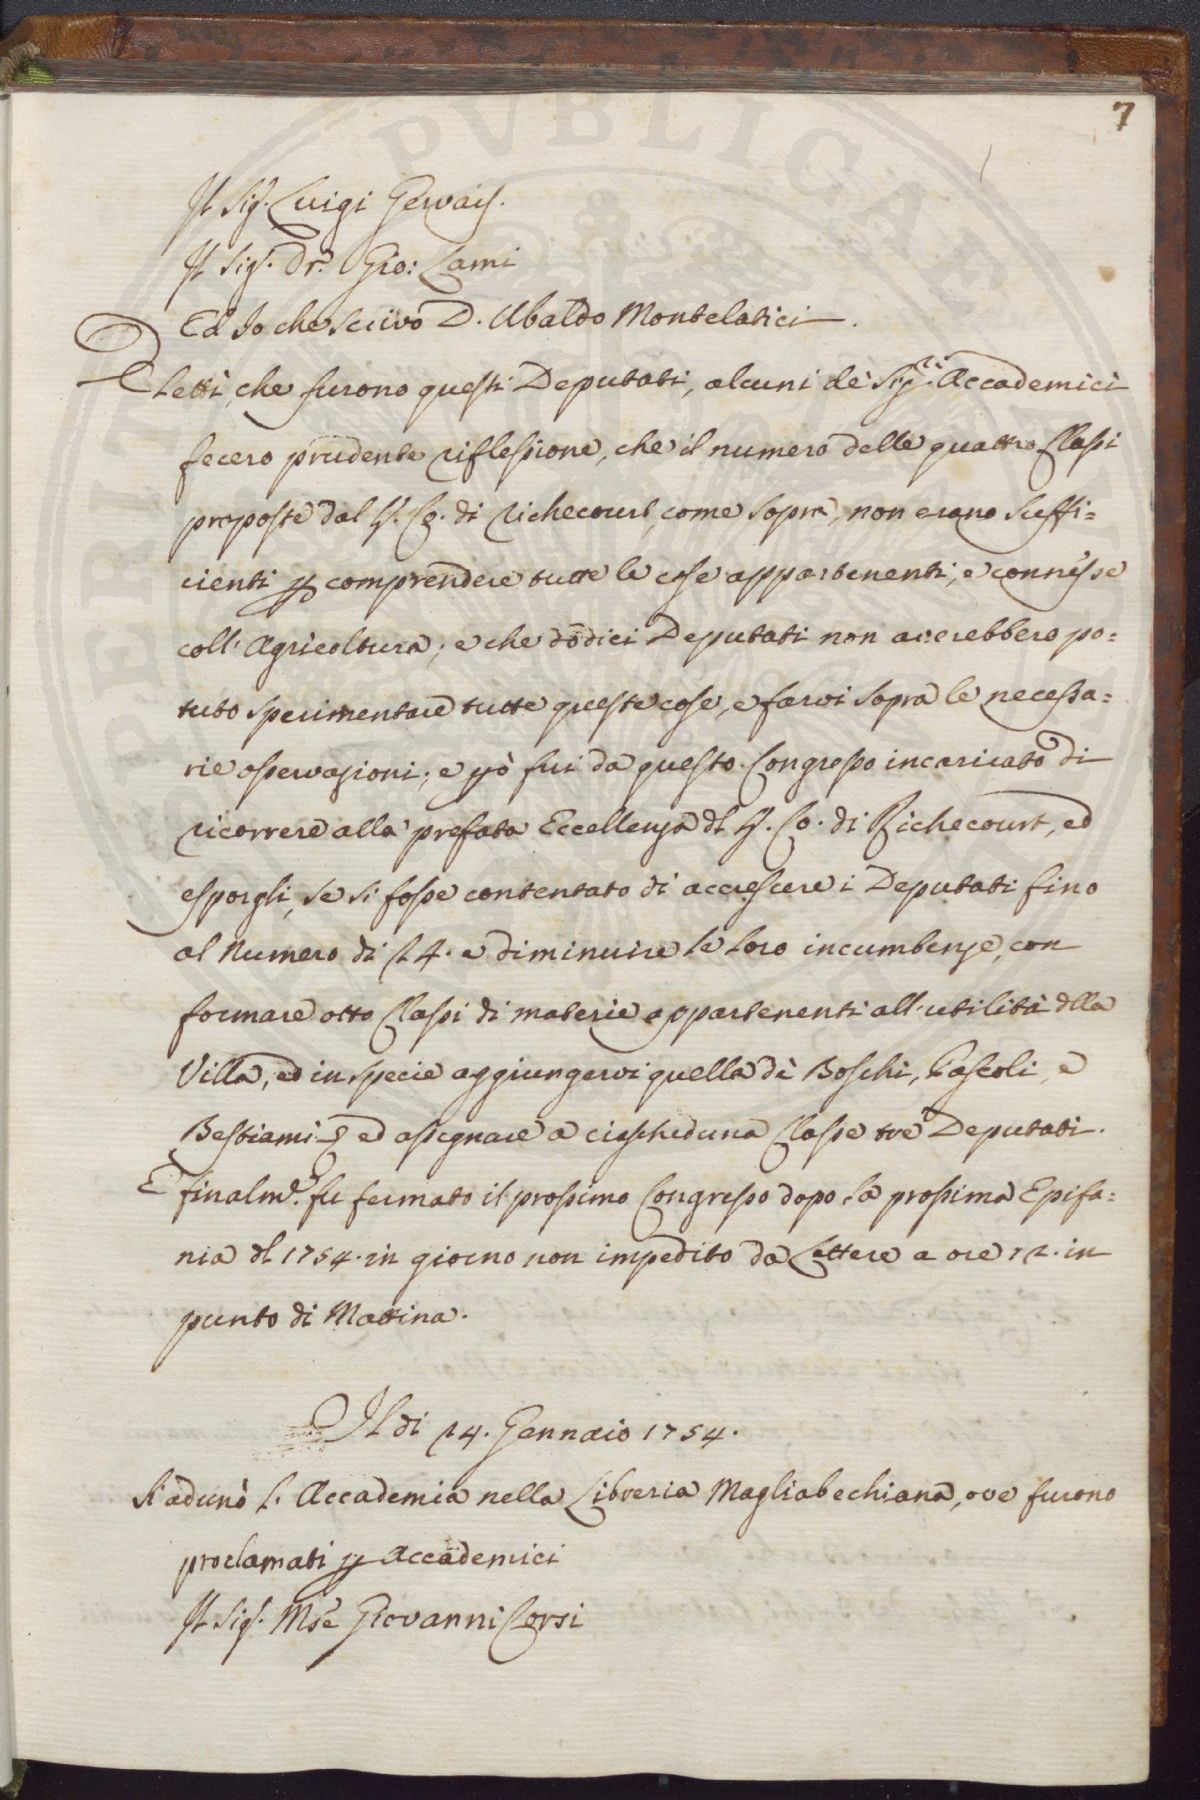 7
Il Sig.r Luigi Gervais.
Il Sig.r Dr. Gio: Lami
Ed Io che scrivo D. Ubaldo Montelatici.
Eletti, che furono questi Deputati, alcuni de' Sig.ri Accademici
fecero prudente riflessione, che il numero delle quattro Classi
proposte dal S. Co. di Richecourt, come sopra, non erano suffi=
cienti p comprendere tutte le cose appartenenti, e connesse
coll' Agricoltura; e che dodici Deputati non averebbero po=
tuto sperimentare tutte queste cose, e farvi sopra le necessa=
rie osservazioni; e pò fui da questo Congresso incaricato di
ricorrere alla prefata Eccellenza dl S. Co. di Richecourt, ed
esporgli, se si fosse contentato di accrescere i Deputati fino
al Numero di 24. e diminuire le loro incumbenze, con
formare otto Classi di materie appartenenti all' utilità dlla
Villa, ed in specie aggiungervi quella de Boschi, Pascoli, e
Bestiami ed assegnare a ciascheduna Classe tre Deputati.
E finalmte. fu fermato il prossimo Congresso dopo la prossima Epifa=
nia dl 1754. in giorno non impedito da Lettere a ore in
punto di Mattina.
Il dì 24. Gennaio 1754.
Si adunò l. Accademia nella Libreria Magliabechiana, ove furono
proclamati p Accademici
Il Sig.r Mse Giovanni Corsi